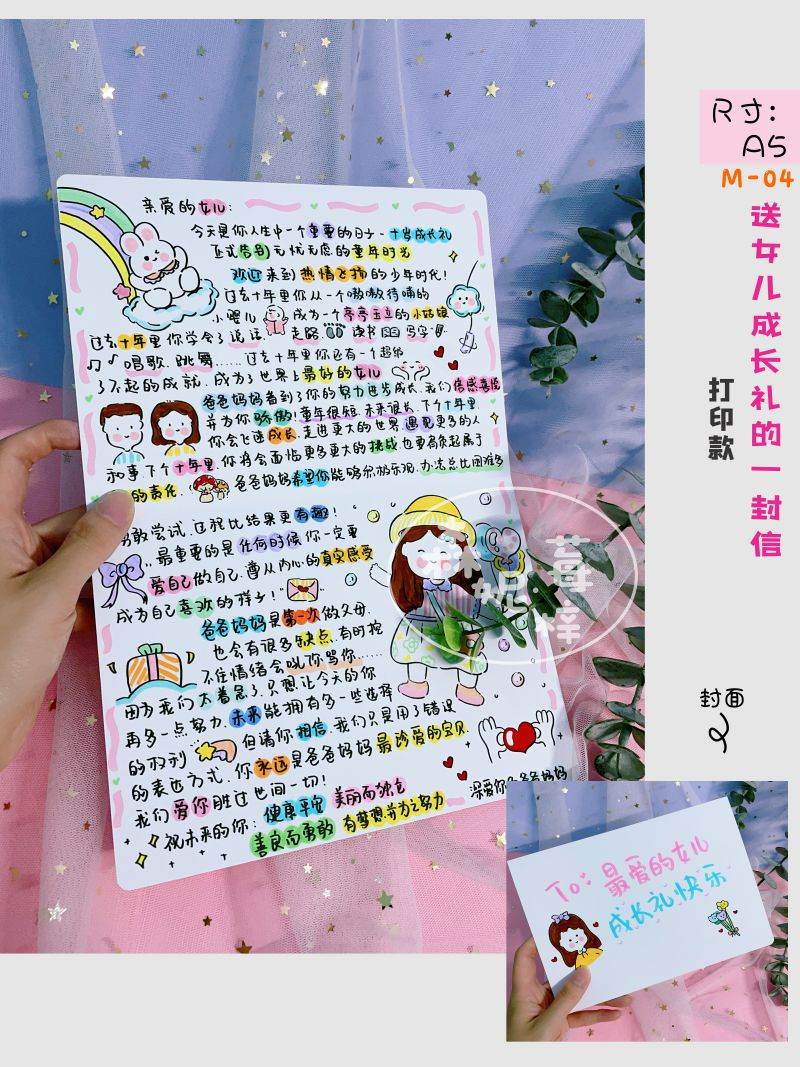 亲爱的女儿：
今天是你人生中一个重要的日子－十岁成长礼
正式告别无忧无虑的童年时光
欢迎来到热情飞扬的少年时代！
过去十年里你从一个嗷嗷待哺的
小婴儿 成为一个亭亭玉立的小姑娘
过去十年里你学会了说话 走路 读书 写字
唱歌．跳舞……过去十年里你还有一个超级
了不起的成就．成为了世界上最好的女儿
爸爸妈妈看到了你的努力进步成长．我们倍感喜悦
并为你骄傲！童年很短．未来很长．下个十年里．
你会飞速成长．走进更大的世界．遇见更多的人
和事．下个十年里．你将会面临更多更大的挑战也要肩负起属于
的责任． 爸爸妈妈希望你能够积极乐观．办法总比困难多
勇敢尝试．过程比结果更有趣！
最重要的是任何时候你一定要
爱自己做自己．遵从内心的真实感受
成为自己喜欢的样子！
爸爸妈妈是第一次做父母．
也会有很多缺点．有时控
不住情绪会吼你骂你……
因为我们太着急了．只想让今天的你
再多一点努力．未来能拥有多一些选择
的权利 但请你相信．我们只是用了错误
的表达方式．你永远是爸爸妈妈最珍爱的宝贝．
我们爱你胜过世间一切！
祝未来的你：健康平安 美丽而独立
善良而勇敢 有梦想并为之努力
深爱你的爸爸妈妈
尺寸：
A5
M-04
送女儿成长礼的一封信
打印款
封面
To：最爱的女儿
成长礼快乐